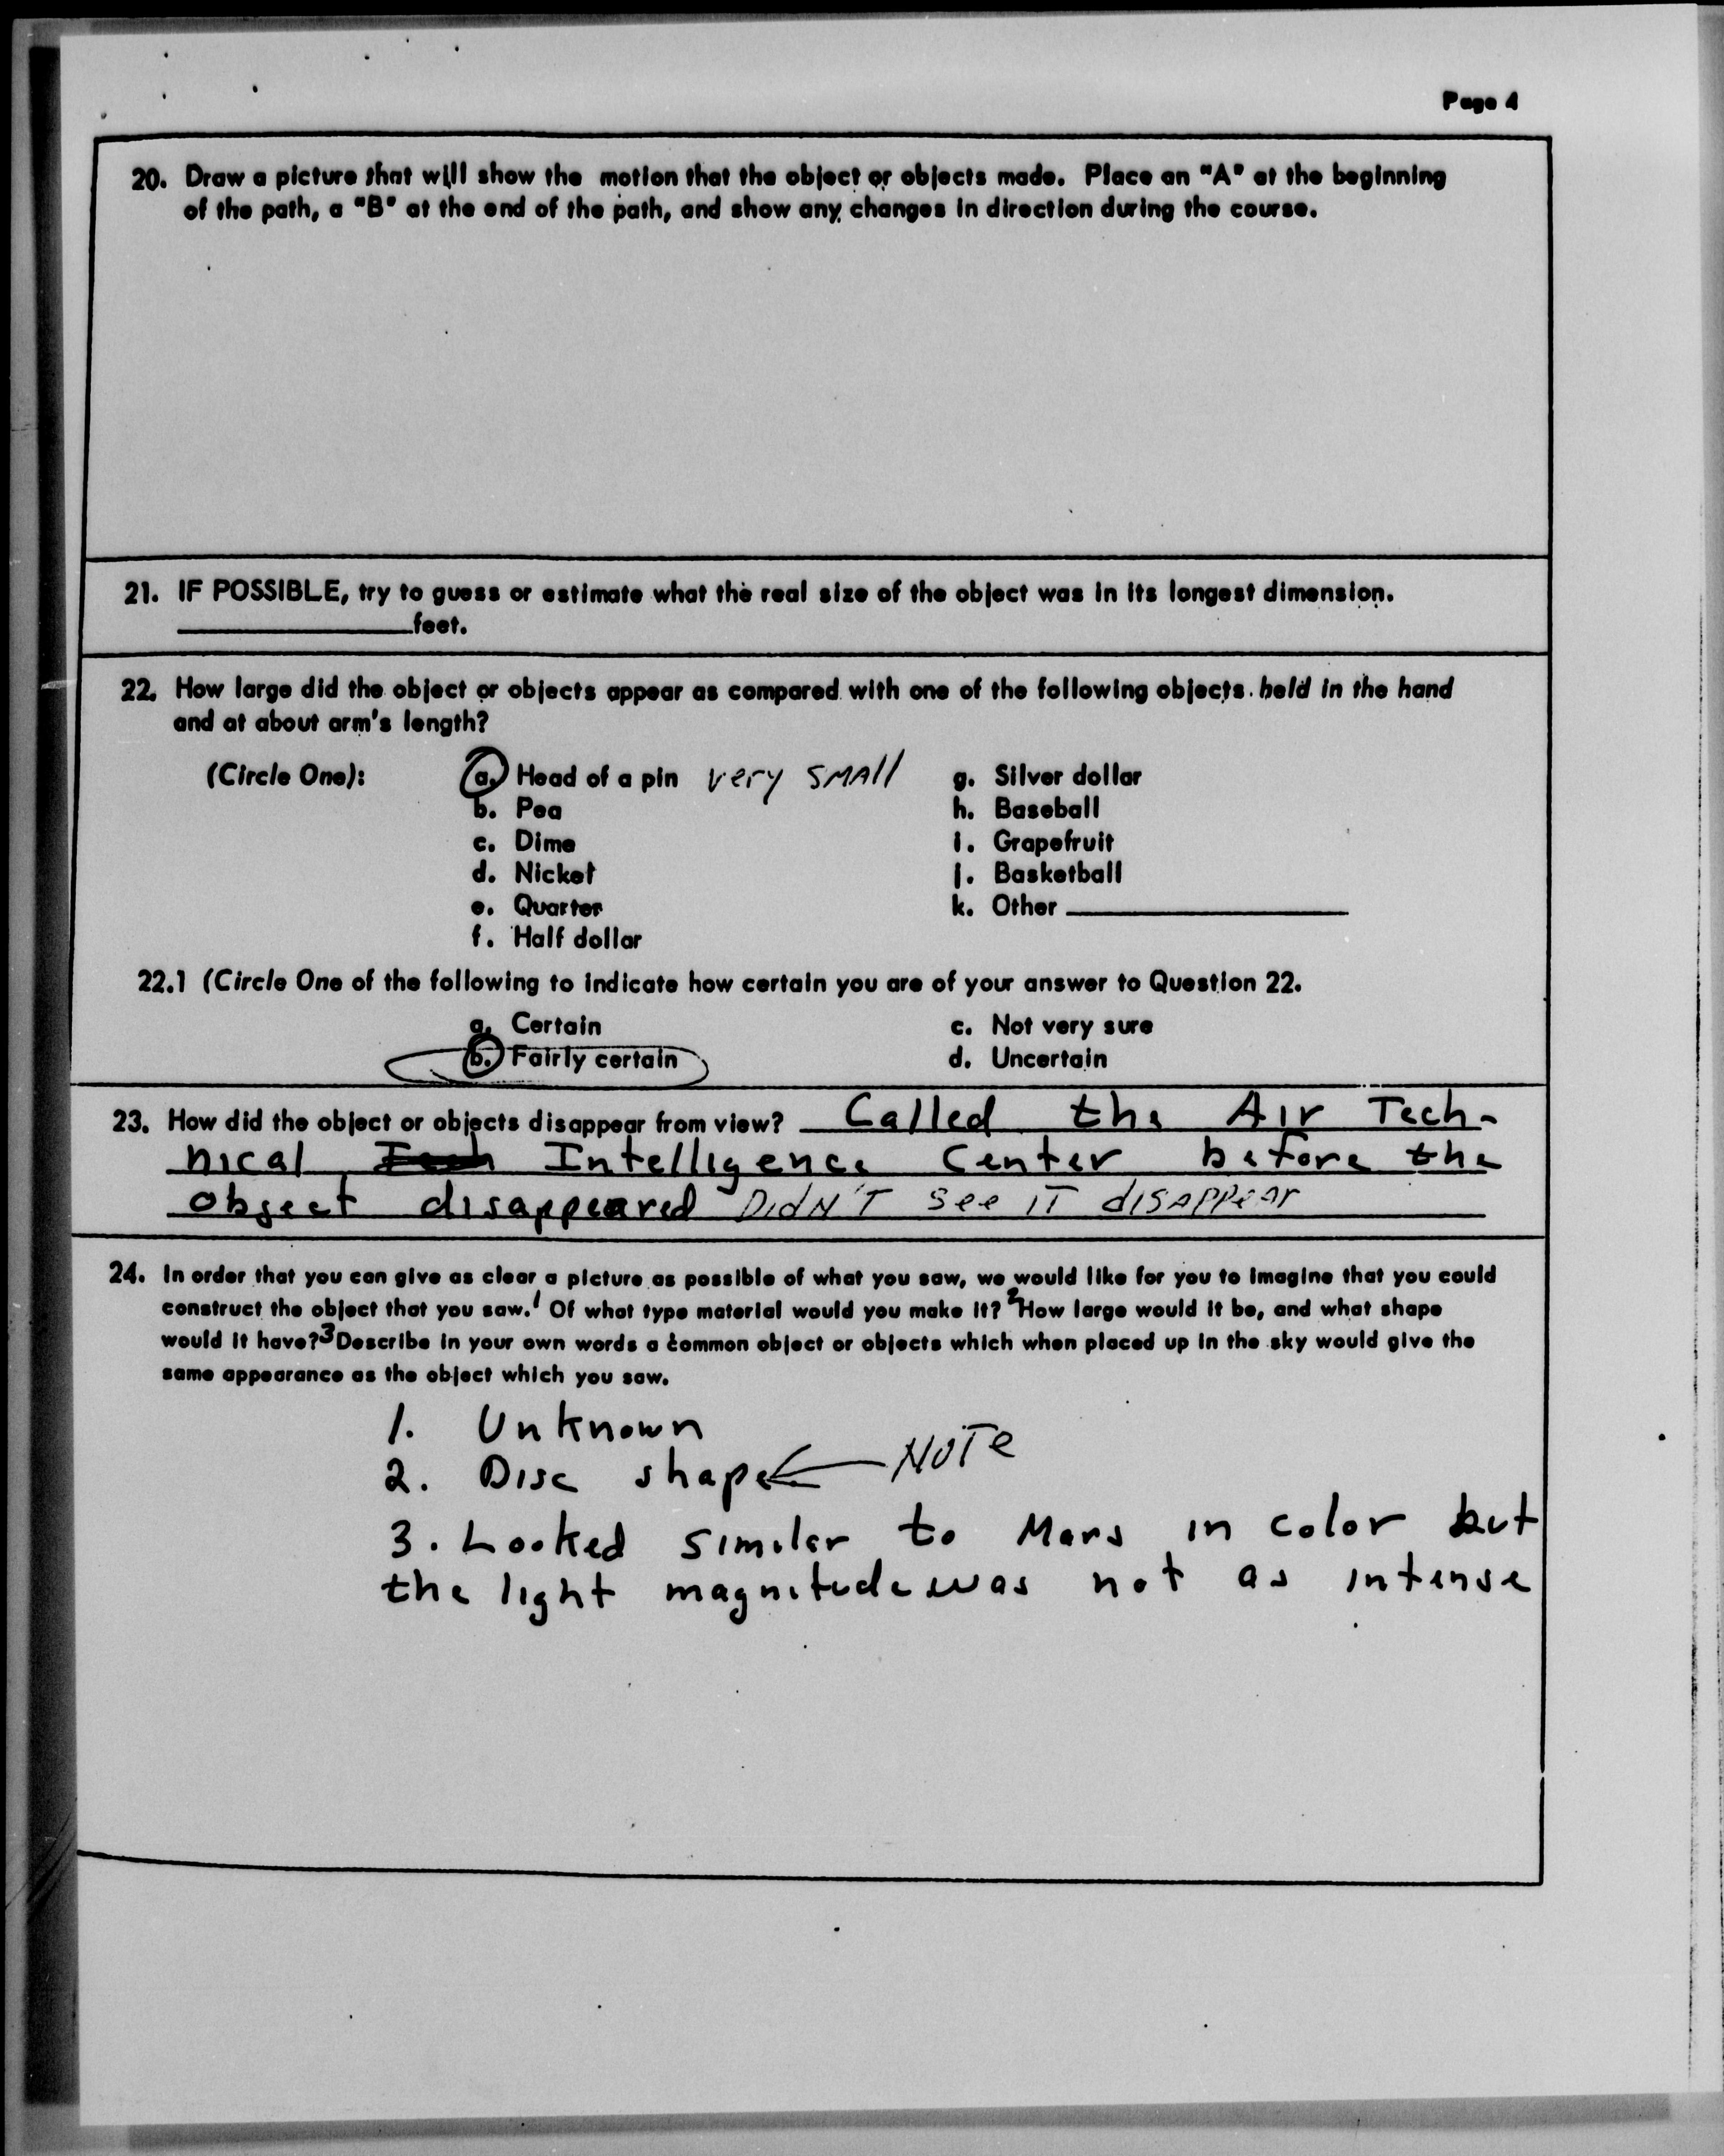 Page 4
20. Draw a picture that will show the motion that the object or objects made. Place an "A" at the beginning
of the path, a "B" at the end of the path, and show any changes in direction during the course.
21. IF POSSIBLE, try to guess or estimate what the real size of the object was in its longest dimension.
____________feet.
22. How large did the object or objects appear as compared with one of the following objects held in the hand
and at about arm's length?
(Circle One): a. Head of a pin very SMAll g. Silver dollar
b. Pea h. Baseball
c. Dime i. Grapefruit
d. Nickel j. Basketball
e. Quarter k. Other ____________
f. Half dollar
22.1 (Circle One of the following to indicate how certain you are of your answer to Question 22.
a. Certain c. Not very sure
b. Fairly certain d. Uncertain
23. How did the object or objects disappear from view? Called the Air Tech-
nical Intelligence Center before the
object disappeared DIDN'T See IT disAppear
24. In order that you can give as clear a picture as possible of what you saw, we would like for you to imagine that you could
construct the object that you saw. 1 Of what type material would you make it? 2 How large would it be, and what shape
would it have? 3 Describe in your own words a common object or objects which when placed up in the sky would give the
same appearance as the object which you saw.
1. Unknown
2. Disc shape ← NOTe
3. Looked similar to Mars in color but
the light magnitude was not as intense